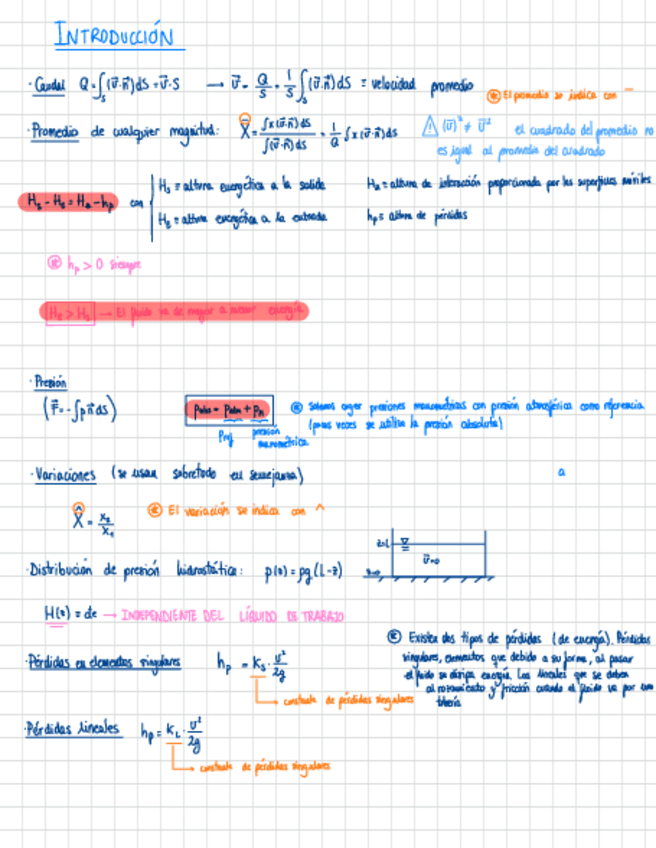 INTRODUCCIÓN
· Caudal Q = ∫ₛ (v̄·n̄) dS = v̄·S → v̄ = Q/S = 1/S ∫ₛ (v̄·n̄) dS ≡ velocidad promedio
⊛ El promedio se indica con —
· Promedio de cualquier magnitud: X̄ = ∫x(v̄·n̄)dS / ∫(v̄·n̄)dS = 1/Q ∫x(v̄·n̄)dS
⚠ (v̄)² ≠ v̄² el cuadrado del promedio no
es igual al promedio del cuadrado
H₂ - H₁ = Hₐ - hₚ con
H₂ ≡ altura energética a la salida
Hₐ = altura de interacción proporcionada por las superficies móviles
altura energética a la entrada
hₚ = altura de pérdidas
⊛ hₚ > 0 siempre
→ El fluido va de mayor a menor energía
· Presión
(F̄ = -∫p n̄ ds)
⊛ Solemos coger presiones manométricas con presión atmosférica como referencia
(pocas veces se utiliza la presión absoluta)
presión
manométrica
· Variaciones (se usan sobretodo en semejanza)
a
X̂ = x₂/x₁
⊛ El variación se indica con ^
· Distribución de presión hidrostática: p(z) = ρg(L-z)
z=L
z=0
v̄=0
H(z) = cte → INDEPENDIENTE DEL LÍQUIDO DE TRABAJO
⊛ Existen dos tipos de pérdidas (de energía). Pérdidas
singulares, elementos que debido a su forma, al pasar
el fluido se disipa energía. Las lineales que se deben
al rozamiento y fricción cuando el fluido va por una
tubería
· Pérdidas en elementos singulares hₚ = Kₛ · v²/2g
constante de pérdidas singulares
· Pérdidas lineales hₚ = K_L · v²/2g
constante de pérdidas singulares